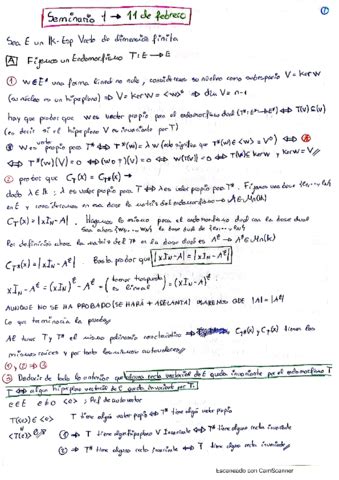 Seminario 1 → 11 de febrero
①
Sea E un K-Esp Vect de dimensión finita
A Fijamos un Endomorfismo T: E → E
① w ∈ E* una forma lineal no nula, consideramos su núcleo como subespacio V = Ker w
(su núcleo es un hiperplano) ⇒ V = Ker w = <w>° ⇒ dim V = n-1
hay que probar que w es vector propio para el endomorfismo dual (T*: E* → E*) ⟺ T(V) ⊆ (V)
(es decir si el hiperplano V es invariante por T)
w es vector propio para T* ⟺ T*(w) = λw (esto significa que T*(w) ∈ <w> = V°) ⟺
⟺ T*(w)(V) = 0 ⟺ (w∘T)(V) = 0 ⟺ w(T(V)) = 0 ⟺ T(V) ⊆ Ker w y Ker w = V
② probar que C_T(x) = C_T*(x) →
dado λ ∈ K, λ es vector propio para T ⟺ λ es vector propio para T*. Fijamos una base {e₁,..., eₙ}
en E y consideramos en esa base la matriz del endomorfismo → A ∈ Mₙ(K)
C_T(x) = |xIₙ - A|. Hagamos lo mismo para el endomorfismo dual con la base dual
Por definición ahora la matriz del T* en la base dual es Aᵗ → Aᵗ ∈ Mₙ(K)
C_T*(x) = |xIₙ - Aᵗ|. Basta probar que |xIₙ - A| = |xIₙ - Aᵗ|
xIₙ - Aᵗ = (xIₙ)ᵗ - Aᵗ = (tomar traspuesta es lineal) = (xIₙ - A)ᵗ
AUNQUE NO SE HA PROBADO (SE HARÁ + ADELANTE) USAREMOS QUE |A| = |Aᵗ|
Lo que terminaría la prueba
Al tener T y T* el mismo polinomio característico → C_T(x) y C_T*(x) tienen las
mismas raíces y por tanto los mismos autovalores
①, ② ⇒ ③
③ Deducir de todo lo anterior que alguna recta vectorial de E queda invariante por el endomorfismo T
T ⟺ algún hiperplano vectorial de E queda invariante por T.
e ∈ E e ≠ 0 <e>; Def de autovector
T(<e>) ⊂ <e> T tiene algún vector propio ⟺ T* tiene algún vector propio
① ⇒ T tiene algún hiperplano V invariante ⟺ T* tiene alguna recta invariante
② ⇒ T* tiene alguna recta invariante ⟺ T tiene alguna recta invariante
Escaneado con CamScanner